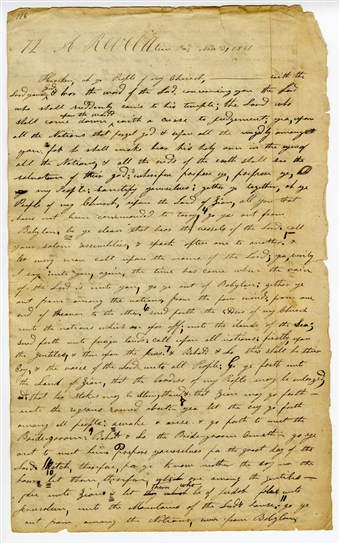 116
72 A Revela
Hearken, oh ye People of my Church, saith the
Lord your God & hear the word of the Lord, concerning you the Lord
who shall suddenly come to his temple; the Lord who
upon the world
shall come down, with a curse to judgement; yea, upon
all the Nations that forget god & upon all the ungodly among
you. for he shall make bare his holy arm in the eyes of
all the Nations, & all the ends of the earth shall see the
salvation of their god; wherefore prepare ye, prepare ye, O
my People; sanctify yourselves; gether ye together, oh ye
People of my Church, upon the Land of Zion, all you that
have not been commanded to tarry go ye out from
Babylon, be ye clean that bear the vessels of the Lord, call
your solem assemblies, & speak often one to another, &
let every man call upon the name of the Lord; yea, verily
I say unto you, again, the time has come when the voice
of the Lord is unto you, go ye out of Babylon; gether ye
out from among the nations, from the four winds, from one
end of heaven to the other, send forth the of my Church
unto the nations which are afar off; unto the Islands of the Sea;
send forth unto foreign lands; call upon all nations; firstly upon
the gentiles, & then upon the Jews. & Behold & Lo, this shall be their
Cry, & the voice of the Lord, unto all People; Go ye forth unto
the Land of Zion, that the borders of my People may be enlarged
& that her Stakes may be strengthened & that Zion may go forth
unto the regions round about. yea let the cry go forth
among all people; awake & arise & go forth to meet the
Bridegroom; Behold & Lo the Bridegroom Cometh, go ye
out to meet him, Prepare yourselves for the great day of the
Lord. Watch, therefore, for ye know neither the day nor the
hour. let them, therefore, who are among the gentiles
flee unto Zion, & let them who be of Judah flee unto
Jerusalem, unto the Mountains of the Lord's house; go ye
out from among the Nations, even from Babylon,